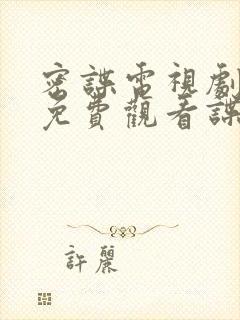 密諜電視劇
免費觀看諜
許麗